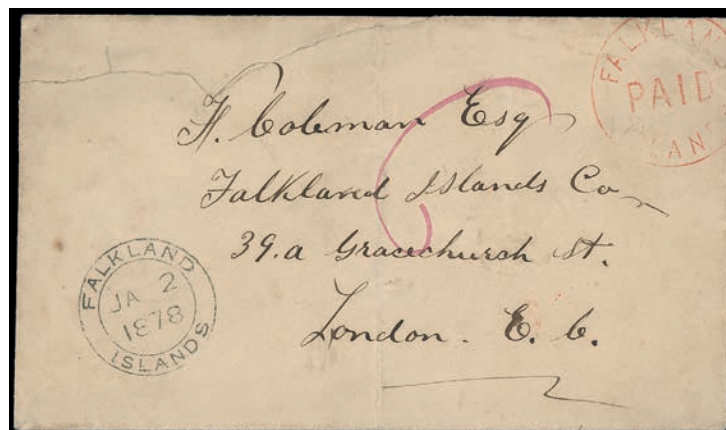 FALKLAND
PAID
ISLANDS
F. Coleman Esq
Falkland Islands Co
39.a Gracechurch St.
London. E. C.
FALKLAND
JA 2
1878
ISLANDS
6